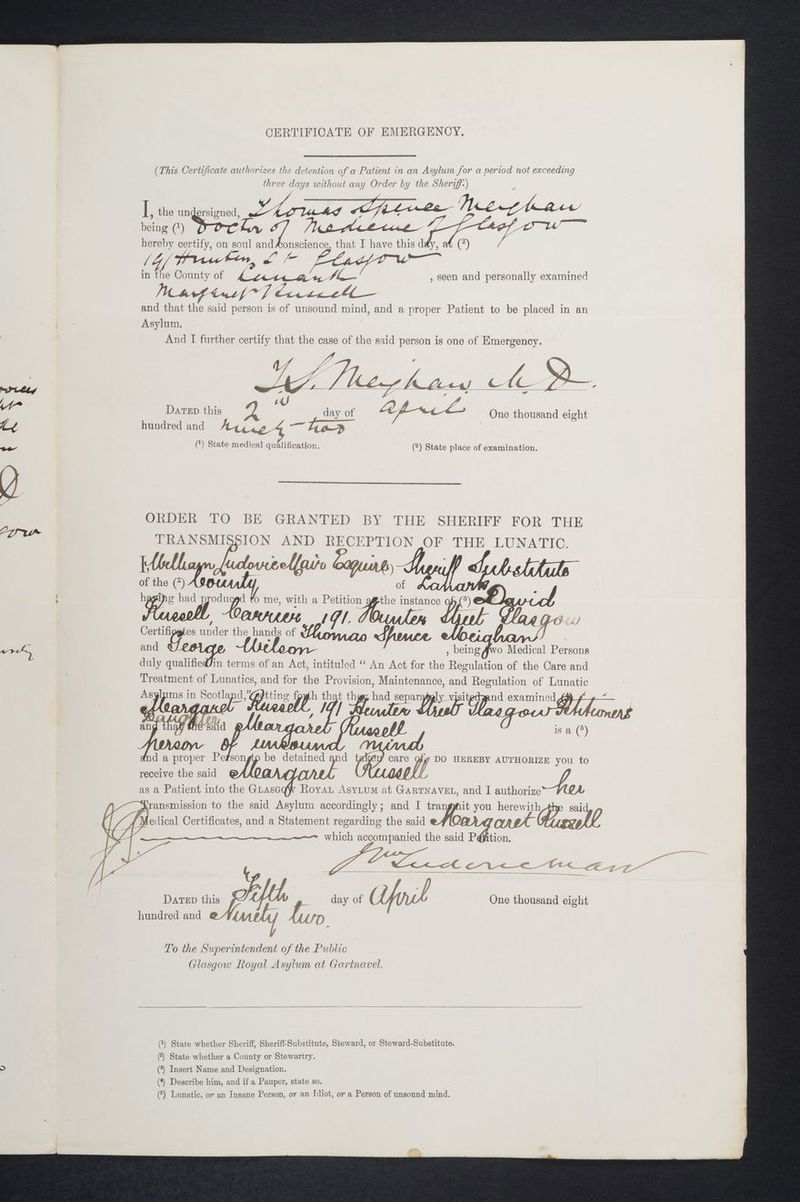 CERTIFICATE OF EMERGENCY.
(This Certificate authorizes the detention of a Patient in an Asylum for a period not exceeding
three days without any Order by the Sheriff.)
I, the undersigned, Thomas Spence Meighan
being (1) Doctor of Medicine of Glasgow
hereby certify, on soul and conscience, that I have this day, at (2)
191 Hunter St Glasgow
in the County of Lanark , seen and personally examined
Margaret Russell
and that the said person is of unsound mind, and a proper Patient to be placed in an
Asylum.
And I further certify that the case of the said person is one of Emergency.
T.S. Meighan M.D.
DATED this 2nd day of April One thousand eight
hundred and ninety-two
(1) State medical qualification. (2) State place of examination.
ORDER TO BE GRANTED BY THE SHERIFF FOR THE
TRANSMISSION AND RECEPTION OF THE LUNATIC.
I, William Ludovic Mair Esquire, Sheriff Substitute
of the (2) County of Lanark
having had produced to me, with a Petition at the instance of (3) David
Russell, Carrier, 191. Hunter Street Glasgow
Certificates under the hands of Thomas Spence Meighan
and George Wilson , being two Medical Persons
duly qualified in terms of an Act, intituled “ An Act for the Regulation of the Care and
Treatment of Lunatics, and for the Provision, Maintenance, and Regulation of Lunatic
Asylums in Scotland,” setting forth that they had separately visited and examined
Margaret Russell, 191 Hunter Street Glasgow Petitioners
Daughter
and that the said Margaret Russell is a (5)
person of unsound mind
and a proper Person to be detained and taken care of, DO HEREBY AUTHORIZE you to
receive the said Margaret Russell
as a Patient into the GLASGOW ROYAL ASYLUM at GARTNAVEL, and I authorize her
Transmission to the said Asylum accordingly; and I transmit you herewith the said
Medical Certificates, and a Statement regarding the said Margaret Russell
which accompanied the said Petition.
Wm Ludovic Mair
DATED this Fifth day of April One thousand eight
hundred and Ninety two.
To the Superintendent of the Public
Glasgow Royal Asylum at Gartnavel.
(1) State whether Sheriff, Sheriff-Substitute, Steward, or Steward-Substitute.
(2) State whether a County or Stewartry.
(3) Insert Name and Designation.
(4) Describe him, and if a Pauper, state so.
(5) Lunatic, or an Insane Person, or an Idiot, or a Person of unsound mind.